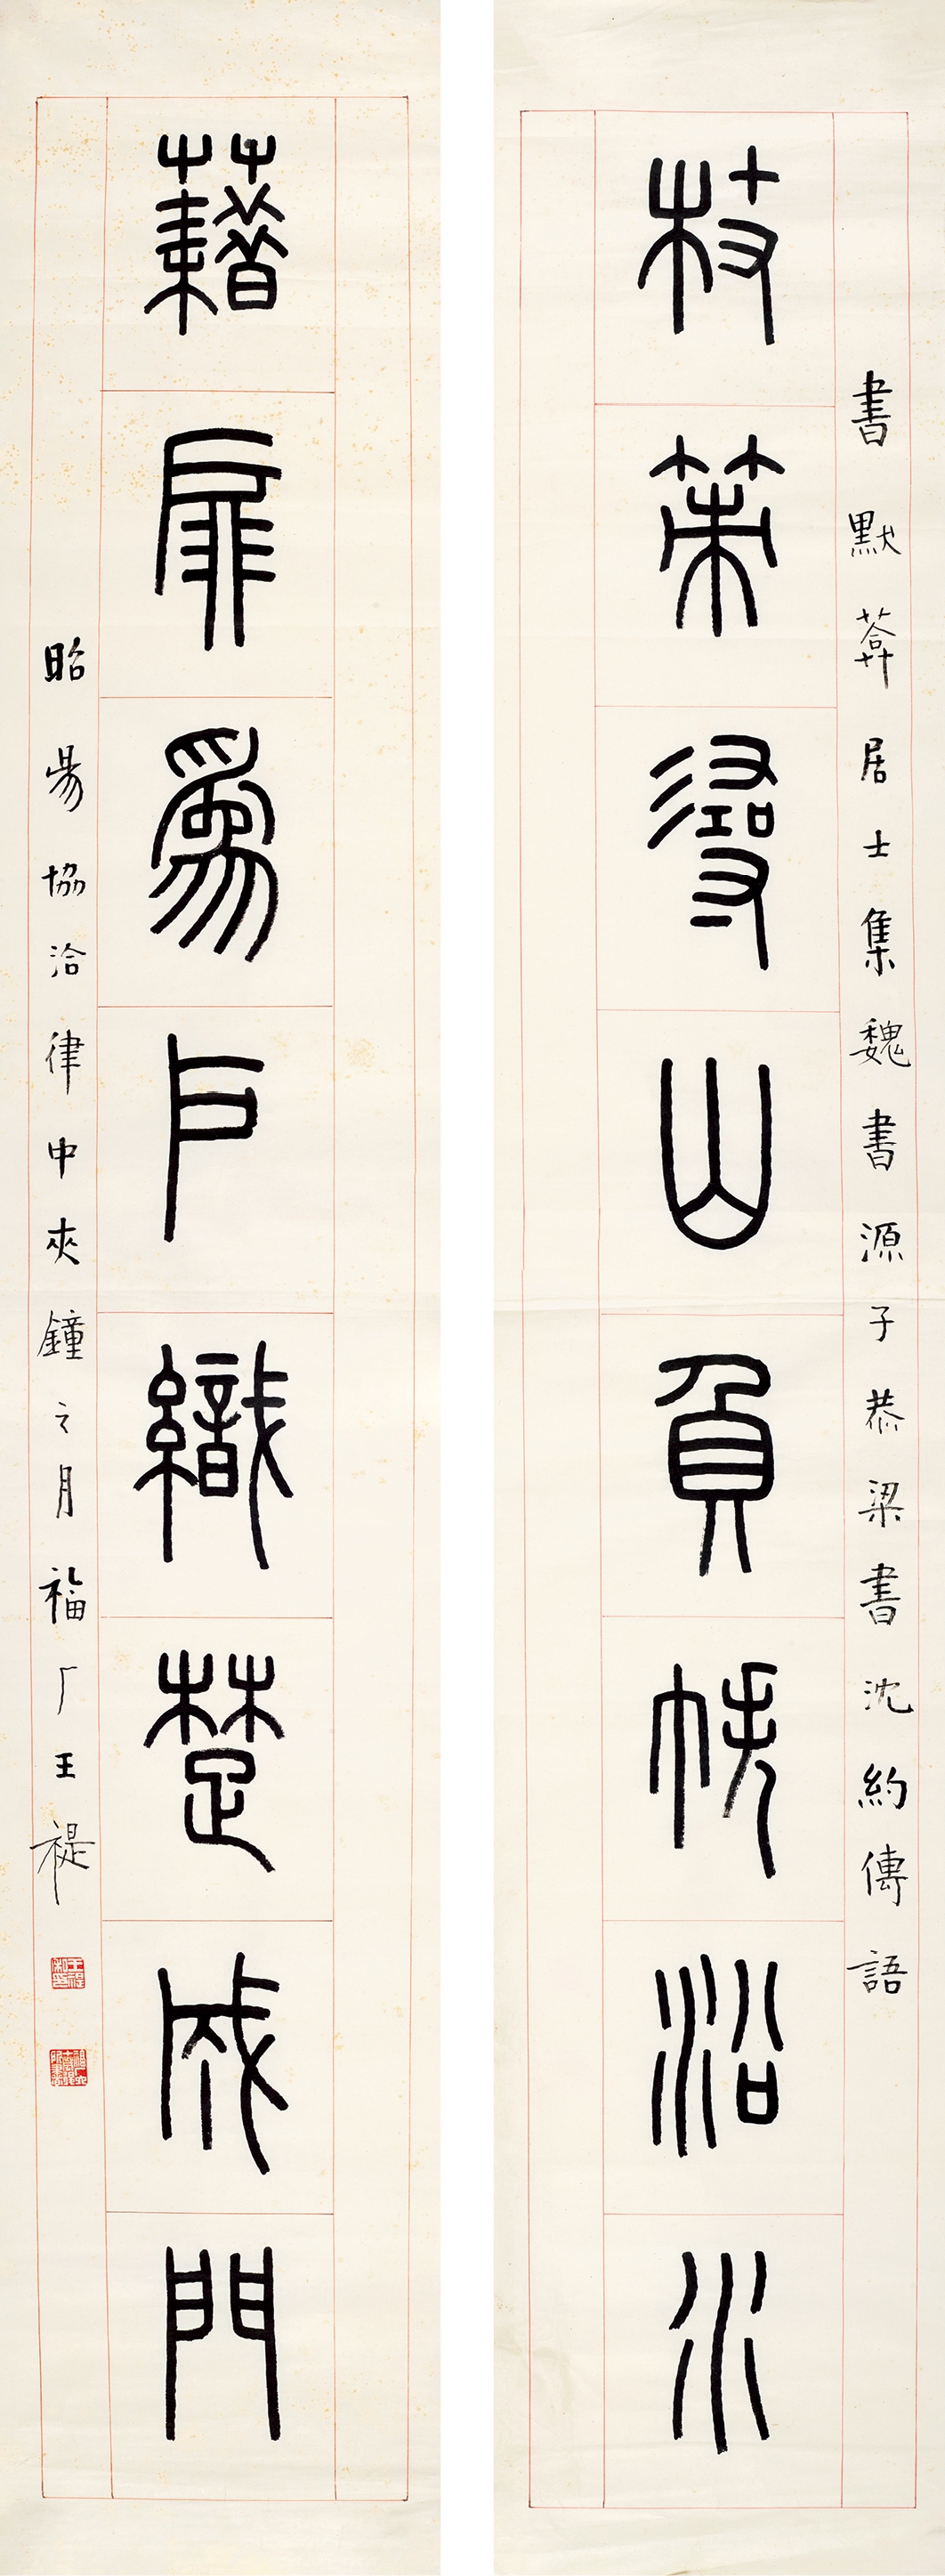 書默葊居士集魏書源子恭梁書沈約傳語
枝策尋山負帙沿水
藉扉為戶織楚成門
昭昜協洽律中夾鐘之月福厂王禔
王禔私印